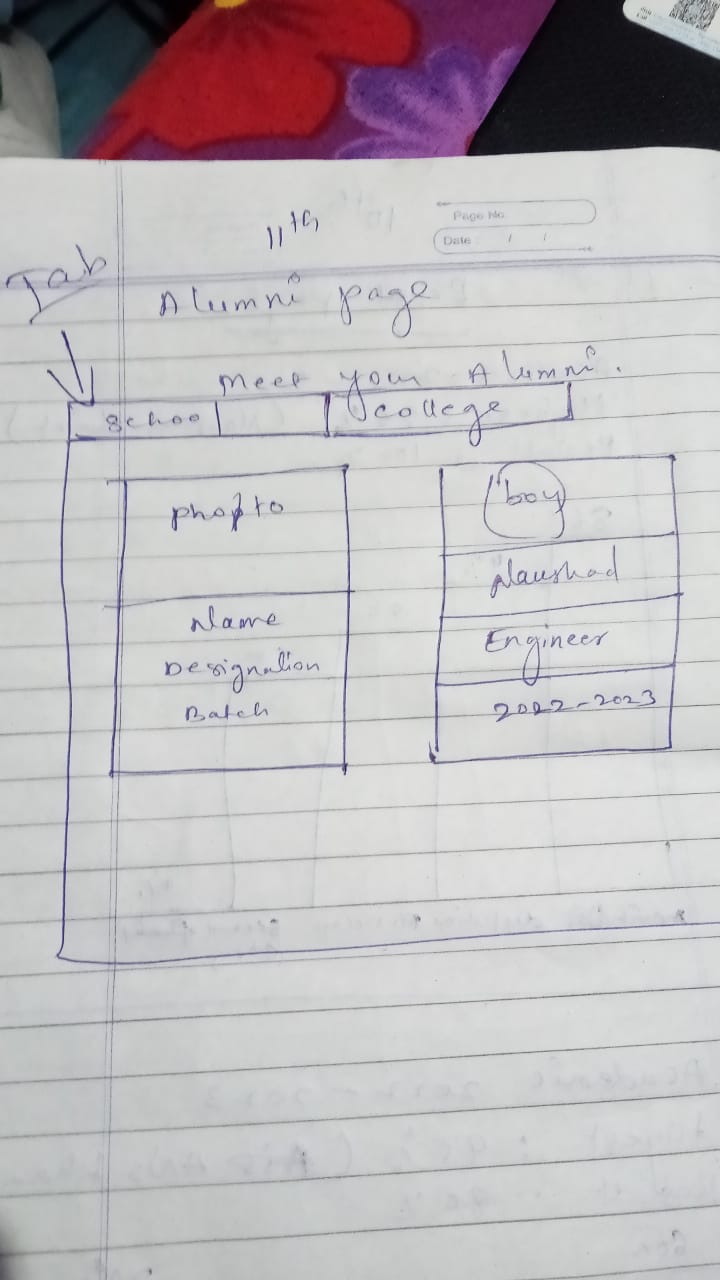 11th
Page No.
Date / /
Tab
Alumni page
Meet your Alumni.
School
College
Photo
Name
Designation
Batch
boy
Naushad
Engineer
2022-2023